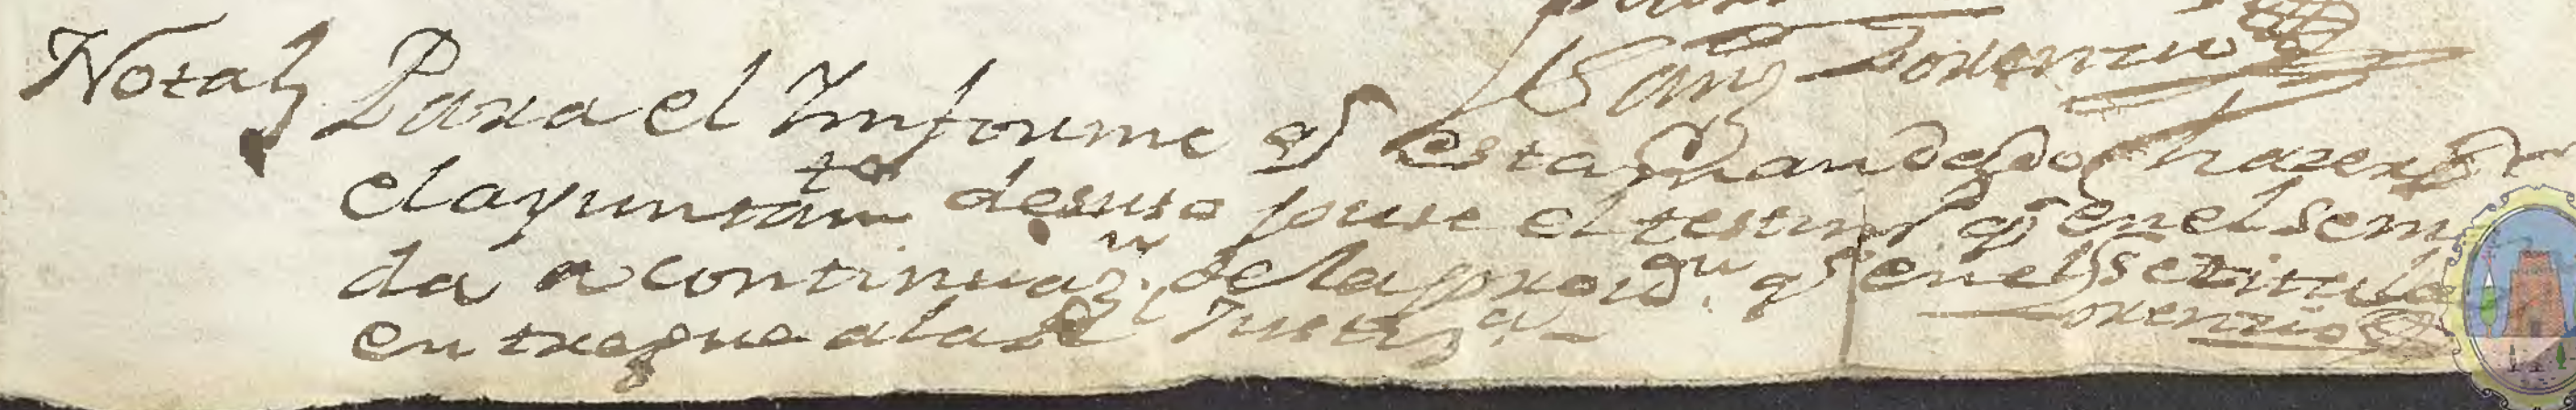 Lorenzio
Nota Para el Ymforme q̃ esta mandado hazer pr
el ayuntamto desuso puse el testimo q̃ en el se m
da a continuazn de la providn q̃ en el se zita y lo
entregue a la Rl Justiza
Lorenzio